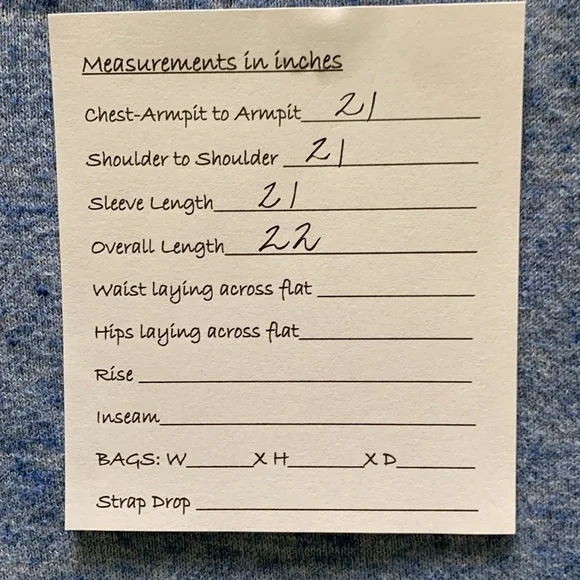 Measurements in inches
Chest-Armpit to Armpit 21
Shoulder to Shoulder 21
Sleeve Length 21
Overall Length 22
Waist laying across flat
Hips laying across flat
Rise
Inseam
BAGS: W______X H______X D______
Strap Drop